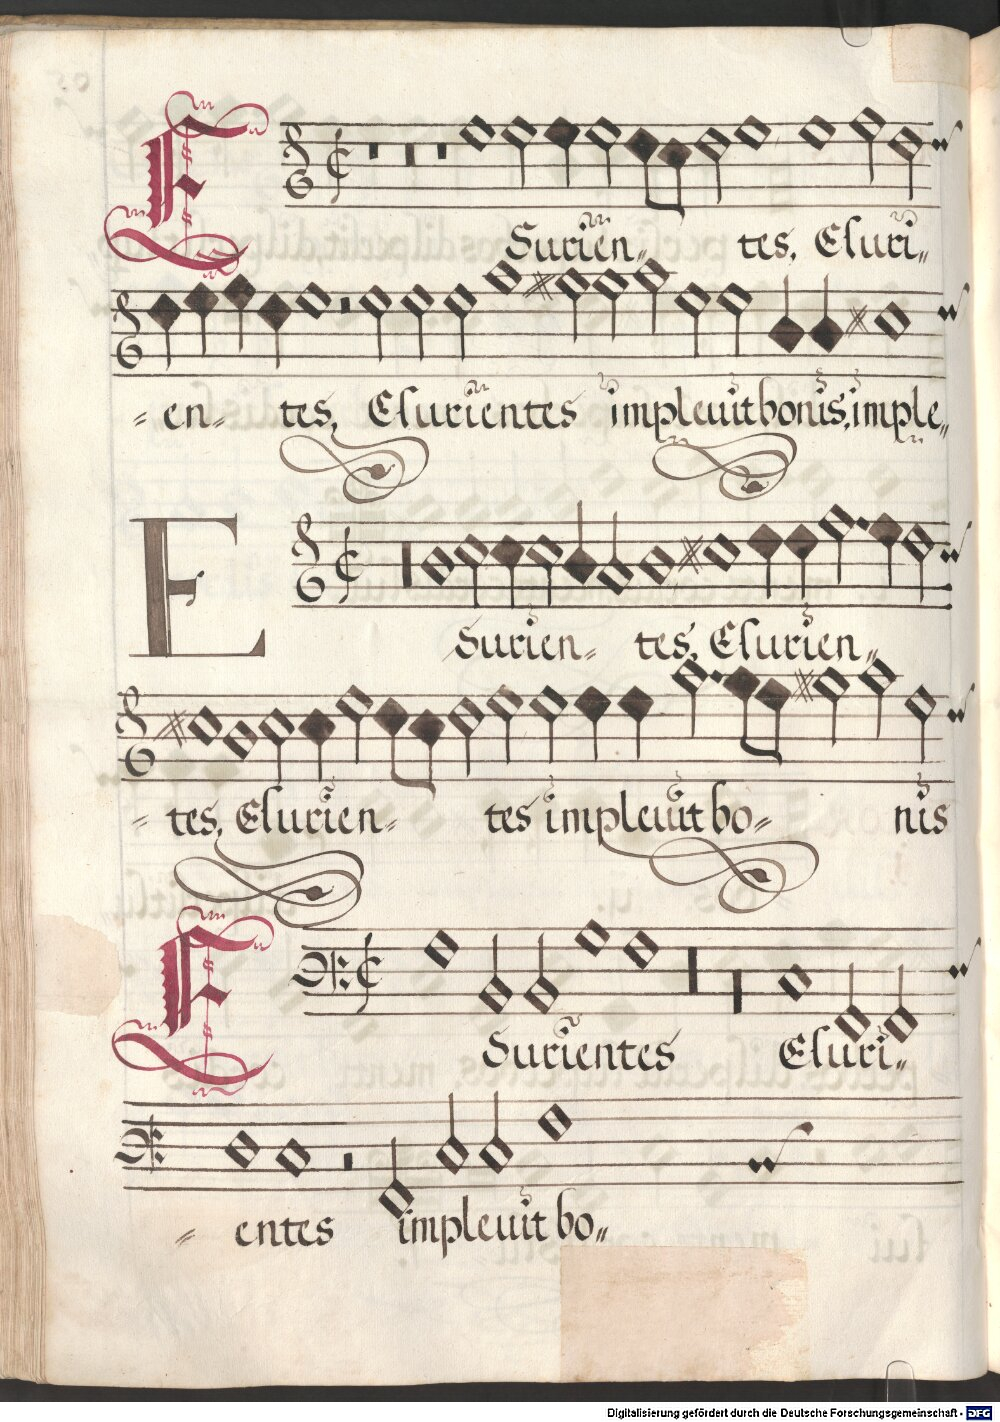 ESurien- tes, Esuri„
-en- tes, Esurientes impleuit bonis, imple„
ESurien- tes, Esurien„
- tes, Esurien- tes impleuit bo- nis
ESurientes Esuri„
- entes impleuit bo„
Digitalisierung gefördert durch die Deutsche Forschungsgemeinschaft - DFG